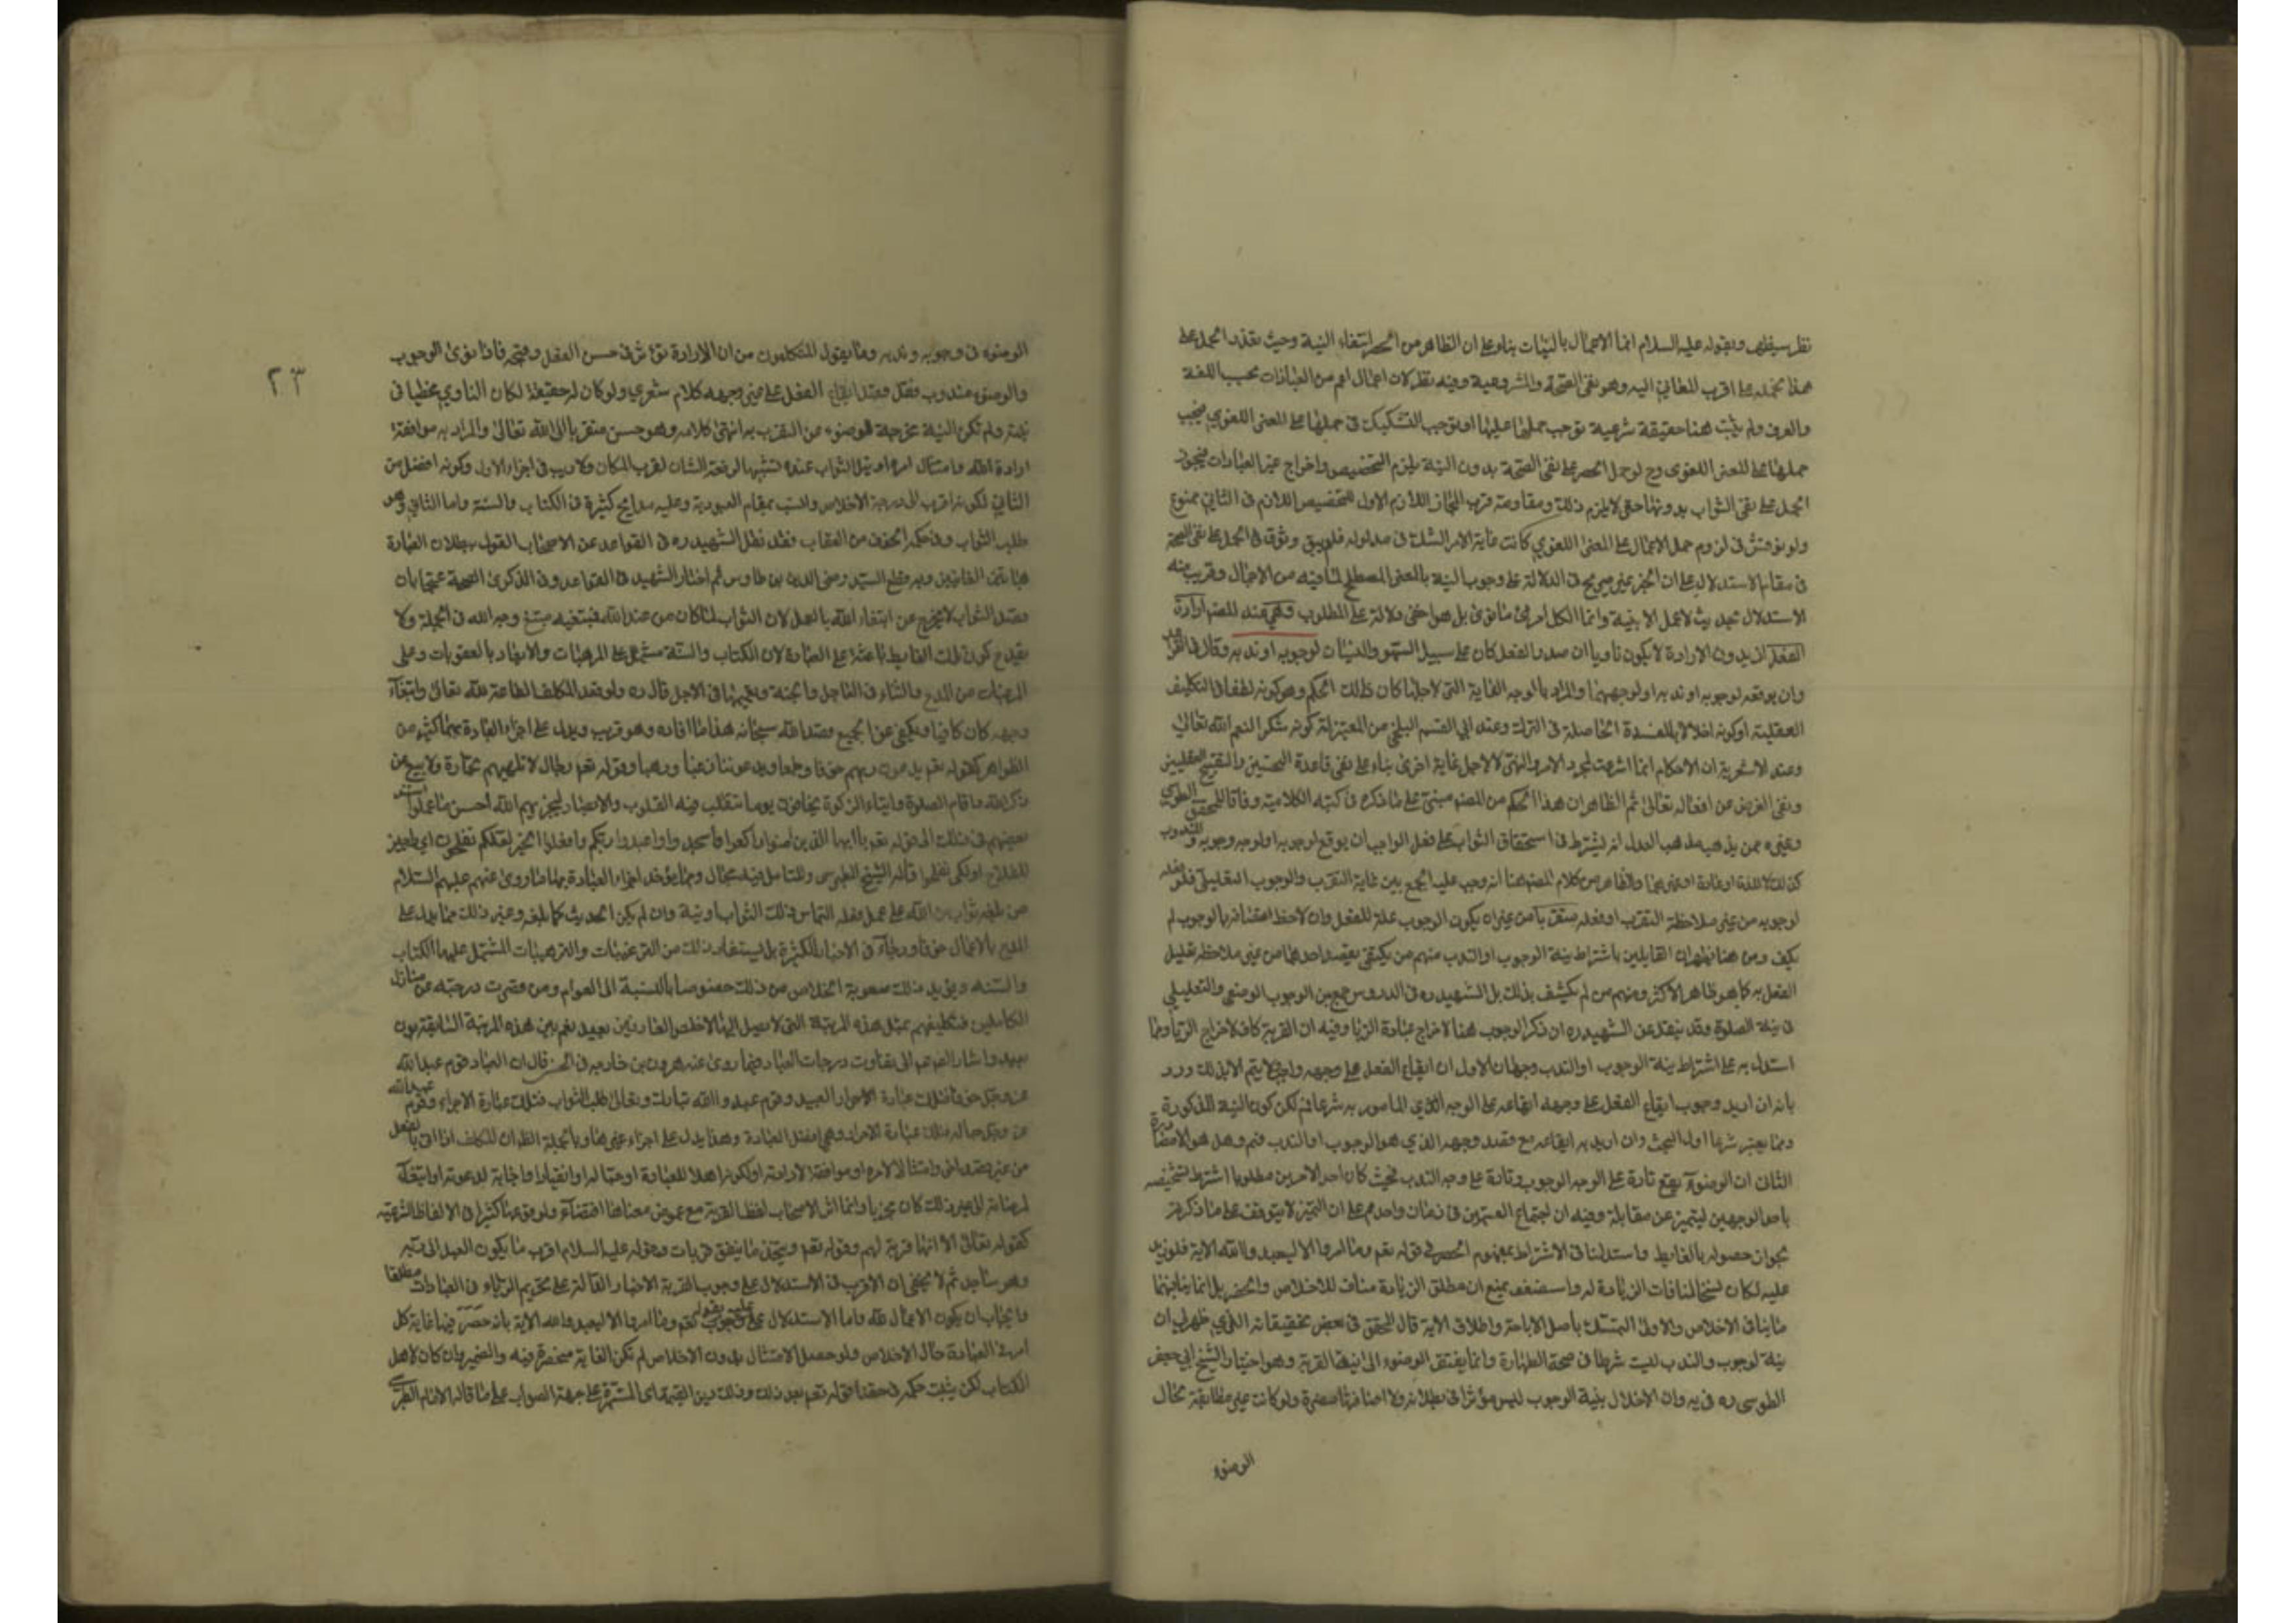 نظر سيظهر وبقوله عليه السلام انما الاعمال بالنيات بناء على ان الظاهر من الحصر انتفاء النية وحيث تعذر الحمل على
هذا نحمله على اقرب المعاني اليه وهو نفي الصحة والمشروعية وفيه نظر لان اعمال اعم من العبادات بحسب اللغة
والعرف ولم يثبت هنا حقيقة شرعية توجب حملها عليها او توجب التشكيك في حملها على المعنى اللغوي فيجب
حملها على المعنى اللغوي وح لو حمل الحصر على نفي الصحة بدون النية يلزم التخصيص واخراج غير العبادات فيجوز
الحمل على نفي الثواب بدونها حتى لا يلزم ذلك ومقاومة قرب المجاز اللازم الاول للتخصيص اللازم في الثاني ممنوع
ولو نوقش في لزوم حمل الاعمال على المعنى اللغوي كانت غاية الامر الشك في مدلوله فلم يبق وثوق في الحمل على نفي الصحة
في مقام الاستدلال على ان الخبر غير صريح في الدلالة على وجوب النية بالمعنى المصطلح لما فيه من الاجمال وقريب منه
الاستدلال بحديث لا عمل الا بنية وانما لكل امرئ ما نوى بل هو اخفى دلالة على المطلوب وهي عند المصنف ارادة
الفعل اذ بدون الارادة لا يكون ناويا ان صدر الفعل كان على سبيل السهو والنسيان لوجوبه او ندبه وقال في
وان يوقعه لوجوبه او ندبه او لوجههما والمراد بالوجه الغاية التي لاجلها كان ذلك الحكم وهو كونه لطفا في التكليف
العقلية او كونه اخلالا بالمفسدة الحاصلة في الترك وعند ابي القسم البلخي من المعتزلة كونه شكرا لنعم الله تعالى
وعند الاشعرية ان الاحكام انما شرعت لمجرد الامر والنهي لا لاجل غاية اخرى بناء على نفي قاعدة التحسين والتقبيح العقليين
ونفي الغرض عن افعاله تعالى ثم الظاهر ان هذا الحكم من المصنف مبني على ما ذكره في كتبه الكلامية وفاقا للمحقق الطوسي
وغيره ممن يذهب مذهب العدل انه يشترط في استحقاق الثواب على فعل الواجب ان يوقع لوجوبه او لوجه وجوبه و المندوب
كذلك لا للذة او عادة او غيرهما والظاهر من كلام المصنف هنا انه وجب عليه الجمع بين غاية التقرب والوجوب التعليلي فلو فعله
لوجوبه من غير ملاحظة التقرب او فعله متقربا من غير ان يكون الوجوب علة للفعل وان لاحظ اتصافه بالوجوب لم
يكف ومن هنا يظهر ان القايلين باشتراط نية الوجوب او الندب منهم من يكتفي بقصد احدهما من غير ملاحظة تعليل
الفعل به كما هو ظاهر الاكثر ومنهم من لم يكتف بذلك بل الشهيد ره في الدروس جمع بين الوجوب الوصفي والتعليلي
في نية الصلوة وقد ينقل عن الشهيد ره ان ذكر الوجوب هنا لاخراج عبادة الريا وفيه ان القربة كاف لاخراج الريا ومما
استدل به على اشتراط نية الوجوب او الندب وجهان الاول ان ايقاع الفعل على وجهه واجب ولا يتم الا بذلك ورد
بانه ان اريد وجوب ايقاع الفعل على وجهه ايقاعه على الوجه الذي المامور به شرعا فم لكن كون النية المذكورة
ومما يعتبر شرعا اول البحث وان اريد به ايقاعه مع قصد وجهه الذي هو الوجوب او الندب فم وهل هو الا مصادرة
الثاني ان الوضوء يقع تارة على الوجه الوجوب وتارة على وجه الندب فحيث كان احد الامرين مطلوبا اشترط تشخيصه
باحد الوجهين ليتميز عن مقابله وفيه ان اجتماع القسمين في زمان واحد م على ان التميز لا يتوقف على ما ذكرتم
بجواز حصوله بالغاية واستدلنا في الاشتراط بمفهوم الحصر في قوله تعم وما امروا الا ليعبدوا الله الاية فلو زيد
عليه لكان نسخا لمنافات الزيادة له واستضعف بمنع ان مطلق الزيادة مناف للاخلاص والحصر بل انما ينافيهما
ما ينافي الاخلاص والاولى التمسك باصل الاباحة واطلاق الاية قال المحقق في بعض تحقيقاته الذي ظهر لي ان
نية الوجوب والندب ليست شرطا في صحة الطهارة وانما يفتقر الوضوء الى نية القربة وهو اختيار الشيخ ابي جعفر
الطوسي ره في يه وان الاخلال بنية الوجوب ليس مؤثرا في بطلانه ولا اضافتها مضرة ولو كانت غير مطابقة بحال
الوضوء
٢٣
الوضوء في وجوبه وندبه وما يقول المتكلمون من ان الارادة تؤثر في حسن الفعل وقبحه فاذا نوى الوجوب
والوضوء مندوب فقد قصد ايقاع الفعل على غير وجهه كلام شعري ولو كان له حقيقة لكان الناوي مخطيا في
نيته ولم تكن النية مخرجة للوضوء عن التقرب به انتهى كلامه وهو حسن متقربا الى الله تعالى والمراد به موافقة
ارادة الله وامتثال امره او نيل الثواب عنده تشبيها لرفعة الشان لقرب المكان ولا ريب في اجزاء الاول وكونه افضل من
الثاني لكونه اقرب الى درجة الاخلاص وانسب بمقام العبودية وعليه مدايح كثيرة في الكتاب والسنة واما الثاني وهو
طلب الثواب وفي حكمه الخوف من العقاب فقد نقل الشهيد ره في القواعد عن الاصحاب القول ببطلان العبادة
بهاتين الغايتين وبه قطع السيد رضي الدين بن طاوس ثم اختار الشهيد في القواعد وفي الذكرى الصحة محتجا بان
قصد الثواب لا يخرج عن ابتغاء الله بالعمل لان الثواب لما كان من عند الله فمبتغيه مبتغ وجه الله في الجملة ولا
يقدح كون تلك الغاية باعثة على العبادة لان الكتاب والسنة مشتمل على المرهبات والايعاد بالعقوبات وعلى
المرغبات من المدح والثناء في العاجل والجنة ونعيمها في الاجل قال ره ولو قصد المكلف الطاعة لله تعالى وابتغاء
وجهه كان كافيا ويكفي عن الجميع قصد الله سبحانه هذا ما افاده وهو قريب ويدل على اجزاء العبادة بهما كثير من
الظواهر كقوله تعم يدعون ربهم خوفا وطمعا ويدعوننا رغبا ورهبا وقوله تعم رجال لا تلهيهم تجارة ولا بيع عن
ذكر الله واقام الصلوة وايتاء الزكوة يخافون يوما تتقلب فيه القلوب والابصار ليجزيهم الله احسن ما عملوا استند
بعضهم في ذلك الى قوله تعم يا ايها الذين امنوا اركعوا واسجدوا واعبدوا ربكم وافعلوا الخير لعلكم تفلحون اي راجين
للفلاح او لكي تفلحوا قاله الشيخ الطبرسي وللتامل فيه مجال ومما يؤكد اجزاء العبادة بهما ما روى عنهم عليهم السلام
من بلغه ثواب من الله على عمل ففعله التماس ذلك الثواب اوتيه وان لم يكن الحديث كما بلغه وغير ذلك مما يدل على
المدح بالاعمال خوفا ورجاء في الاخبار الكثيرة بل يستفاد ذلك من الترغيبات والترهيبات المشتمل عليها الكتاب
والسنة ويؤيد ذلك صعوبة الخلاص من ذلك خصوصا بالنسبة الى العوام ومن قصرت درجته عن منازل
الكاملين فتكليفهم بمثل هذه المرتبة التي لا يصل اليها الا خلص العارفين بعيد نعم بين هذه المرتبة السابقة بون
بعيد واشار الص عم الى تفاوت درجات العباد فيما روى عنه هرون بن خارجه في الحسن قال ان العباد قوم عبدوا الله
عز وجل خوفا فتلك عبادة العبيد وقوم عبدوا الله تبارك وتعالى طلب الثواب فتلك عبادة الاجراء وقوم عبدوا الله
عز وجل حبا له فتلك عبادة الاحرار وهي افضل العبادة وهذا يدل على اجزاء غيرها وبالجملة الظ ان المكلف اذا اتى بالفعل
من غير قصد اخر امتثالا لامره او موافقة لارادته او لكونه اهلا للعبادة او حبا له او انقيادا واجابة لدعوته او ابتغاء
لمرضاته الى غير ذلك كان مجزيا وانما اثر الاصحاب لفظ القربة مع غموض معناها اقتفاء ولوقوعها كثيرا في الالفاظ الشرعية
كقوله تعالى الا انها قربة لهم وقوله تعم ويتخذ ما ينفق قربات وقوله عليه السلام اقرب ما يكون العبد الى ربه
وهو ساجد ثم لا يخفى ان الاقرب في الاستدلال على وجوب القربة الاخبار الدالة على تحريم الرياء في العبادات مطلقا
وايجاب ان يكون الاعمال لله واما الاستدلال على وجوب بقوله تعم وما امروا الا ليعبدوا الله الاية بانه حصر فيها غاية كل
امر في العبادة حال الاخلاص ولو حصل الامتثال بدون الاخلاص لم تكن الغاية منحصرة فيه والضمير وان كان لاهل
الكتاب لكن يثبت حكمه في حقنا لقوله تعم بعد ذلك وذلك دين القيمة اي المستمرة على جهة الصواب على ما قاله الامام الطبرسي